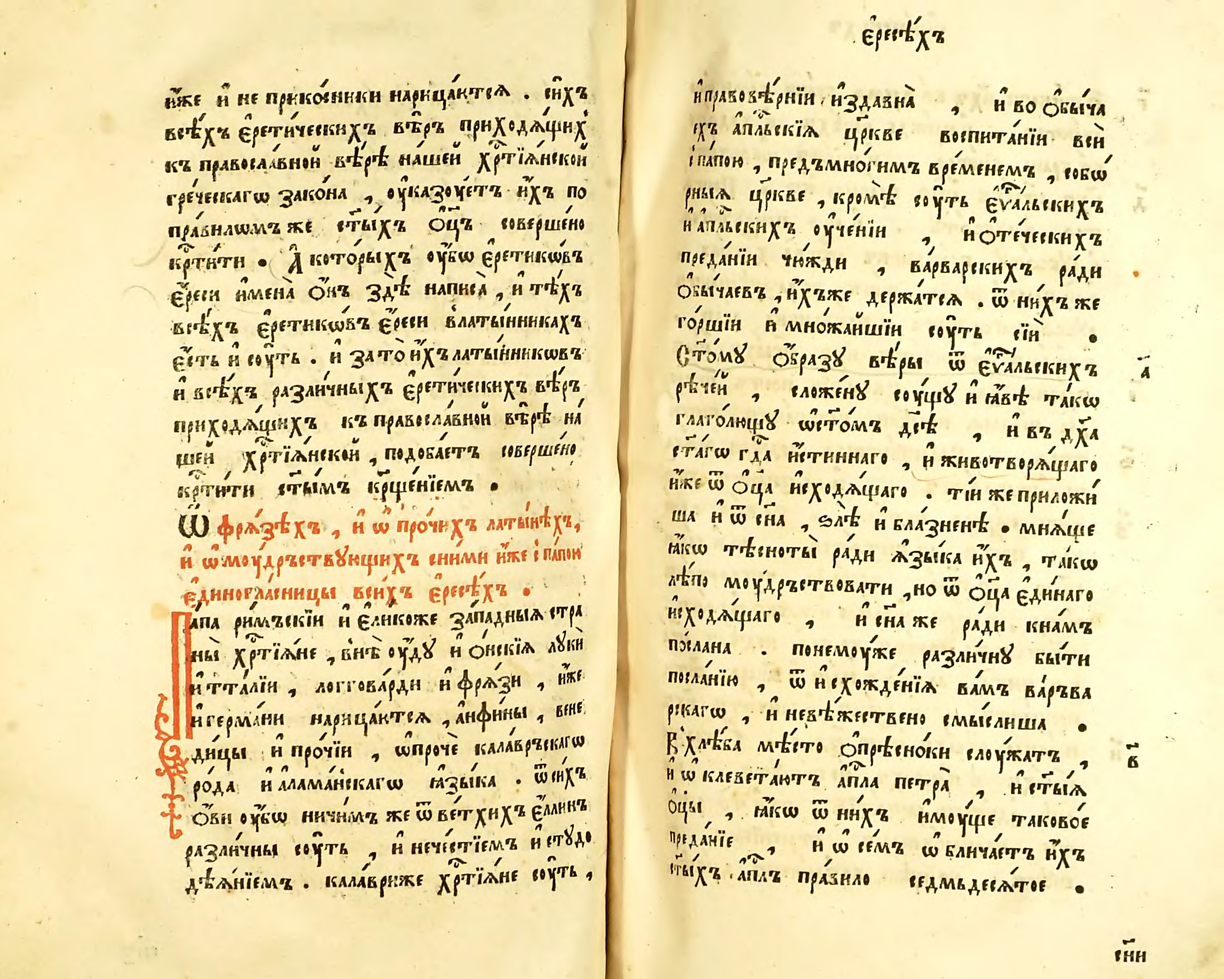 и҆́же и҆ не прико́сники нарица́ются . си́хъ
всѣ́хъ є҆рети́ческихъ вѣ́ръ приходѧ́щих
къ правосла́вной вѣ́рѣ на́шей хр҇тїѧ́нской
гре́ческагѡ зако́на , ᲂу҆казꙋ́етъ и҆́хъ по
пра́вилѡмъ же ст҃ы́хъ ѻ҆ц҃ъ соверше́но
кр҇ти́ти . А҆ кото́рыхъ ᲂу҆́бѡ є҆ретикѡ́въ
є҆́реси и҆мена̀ ѻ҆́нъ здѣ̀ написа̀ , и҆ тѣ́хъ
всѣ́хъ є҆ретикѡ́въ є҆́реси в латы́нникахъ
є҆́сть и҆ сꙋ́ть . и҆ за то̀ и҆́хъ латы́нникѡвъ
и҆ всѣ́хъ разли́чныхъ є҆рети́ческихъ вѣ́ръ
приходѧ́щихъ къ правосла́вной вѣ́рѣ на́
шей хр҇тїѧ́нской , подоба́етъ соверше́но
кр҇ти́ти ст҃ы́мъ кр҃ще́нїемъ .
Ѽ фрѧ́зѣхъ , и҆ ѡ҆ про́чихъ латы́нѣхъ ,
и҆ ѡ҆ мꙋ́дръствꙋющихъ сни́ми и҆́же с па́пои
є҆диногла́сницы всѝхъ є҆ресѣ́хъ .
Па́па ри́мъскїи и҆ є҆ли́коже за́падныѧ стра
ны̀ хр҇тїѧ́не , внѣ̀ ᲂу҆́дꙋ и҆ ѻ҆́нскїѧ лꙋкѝ
и҆тта́лїи , логгова́рди и҆ фрѧ́зи , и҆́же
и҆ герма́ни нарица́ются , а҆нфи́ны , вене
ди́цы и҆ про́чїи , ѡ҆про́че кала́връскагѡ
ро́да и҆ а҆лама́нскагѡ ꙗ҆зы́ка . ѿ си́хъ
ѻ҆́ви ᲂу҆́бѡ ничи́мъ же ѿ ве́тхихъ є҆́ллинъ
разли́чны сꙋ́ть , и҆ нече́стїемъ и҆ стꙋдо
дѣѧ́нїемъ . кала́вриже хр҇тїѧ́не сꙋ́ть ,
є҆ресѣ́хъ
и҆ правовѣ́рнїи и҆здавна̀ , и҆ во ѻ҆бы́ча
ехъ а҆п҇льскїѧ цр҃кве воспита́нїи всѝ
с па́пою , предъ мно́гимъ вре́менемъ , собо́
рныѧ цр҃кве , кромѣ̀ сꙋ́ть є҆ѵⷢ҇альскихъ
и҆ а҆п҇льскихъ ᲂу҆че́нїи , и҆ ѻ҆те́ческихъ
преда́нїи чю́жди , ва́рварскихъ ра́ди
ѻ҆бы́чаевъ , и҆́хъже держа́тсѧ . ѿ ни́хъ же
го́ршїи и҆ мно́жайшїи сꙋ́ть сїѝ .
Ст҃о́мꙋ ѻ҆́бразꙋ вѣ́ры ѿ є҆ѵⷢ҇альскихъ
а҃
рѣ́чей , сложе́нꙋ сꙋ́щꙋ и҆ ꙗ҆́вѣ та́кѡ
глаго́лющꙋ ѡ҆ ст҃о́мъ дс҃ѣ , и҆ въ дх҃а
ст҃а́гѡ гдⷭ҇а и҆́стиннаго , и҆ животворѧ́щаго
и҆́же ѿ ѻ҆ц҃а и҆сходѧ́щаго . ті́и же приложи́
ша и҆ ѿ сн҃а , ѕлѣ̀ и҆ бла́зненѣ . мнѧ́ще
ꙗ҆́кѡ тѣсноты̀ ра́ди ꙗ҆зы́ка и҆́хъ , та́кѡ
лѣ́по мꙋ́дръствовати , но ѿ ѻ҆ц҃а є҆ди́наго
и҆сходѧ́щаго , и҆ сн҃а же ра́ди к на́мъ
по́слана . поне́мꙋже разли́чнꙋ бы́ти
посла́нїю , ѿ и҆схожде́нїѧ ва́мъ ва́рьва
рскагѡ , и҆ невѣ́жествено смы́слиша .
В҃ хлѣ́ба мѣ́сто ѻ҆прѣсно́ки слꙋ́жатъ ,
в҃
и҆ ѡ҆клевета́ютъ а҆п҇ла петра̀ , и҆ ст҃ы́ѧ
ѻ҆ц҃ы , ꙗ҆́кѡ ѿ ни́хъ и҆мꙋ́ще таково́е
преда́нїе , и҆ ѡ҆ се́мъ ѡ҆блича́етъ и҆́хъ
ст҃ы́хъ а҆п҇лъ пра́вило седмьдесѧ́тое .
сн҃и